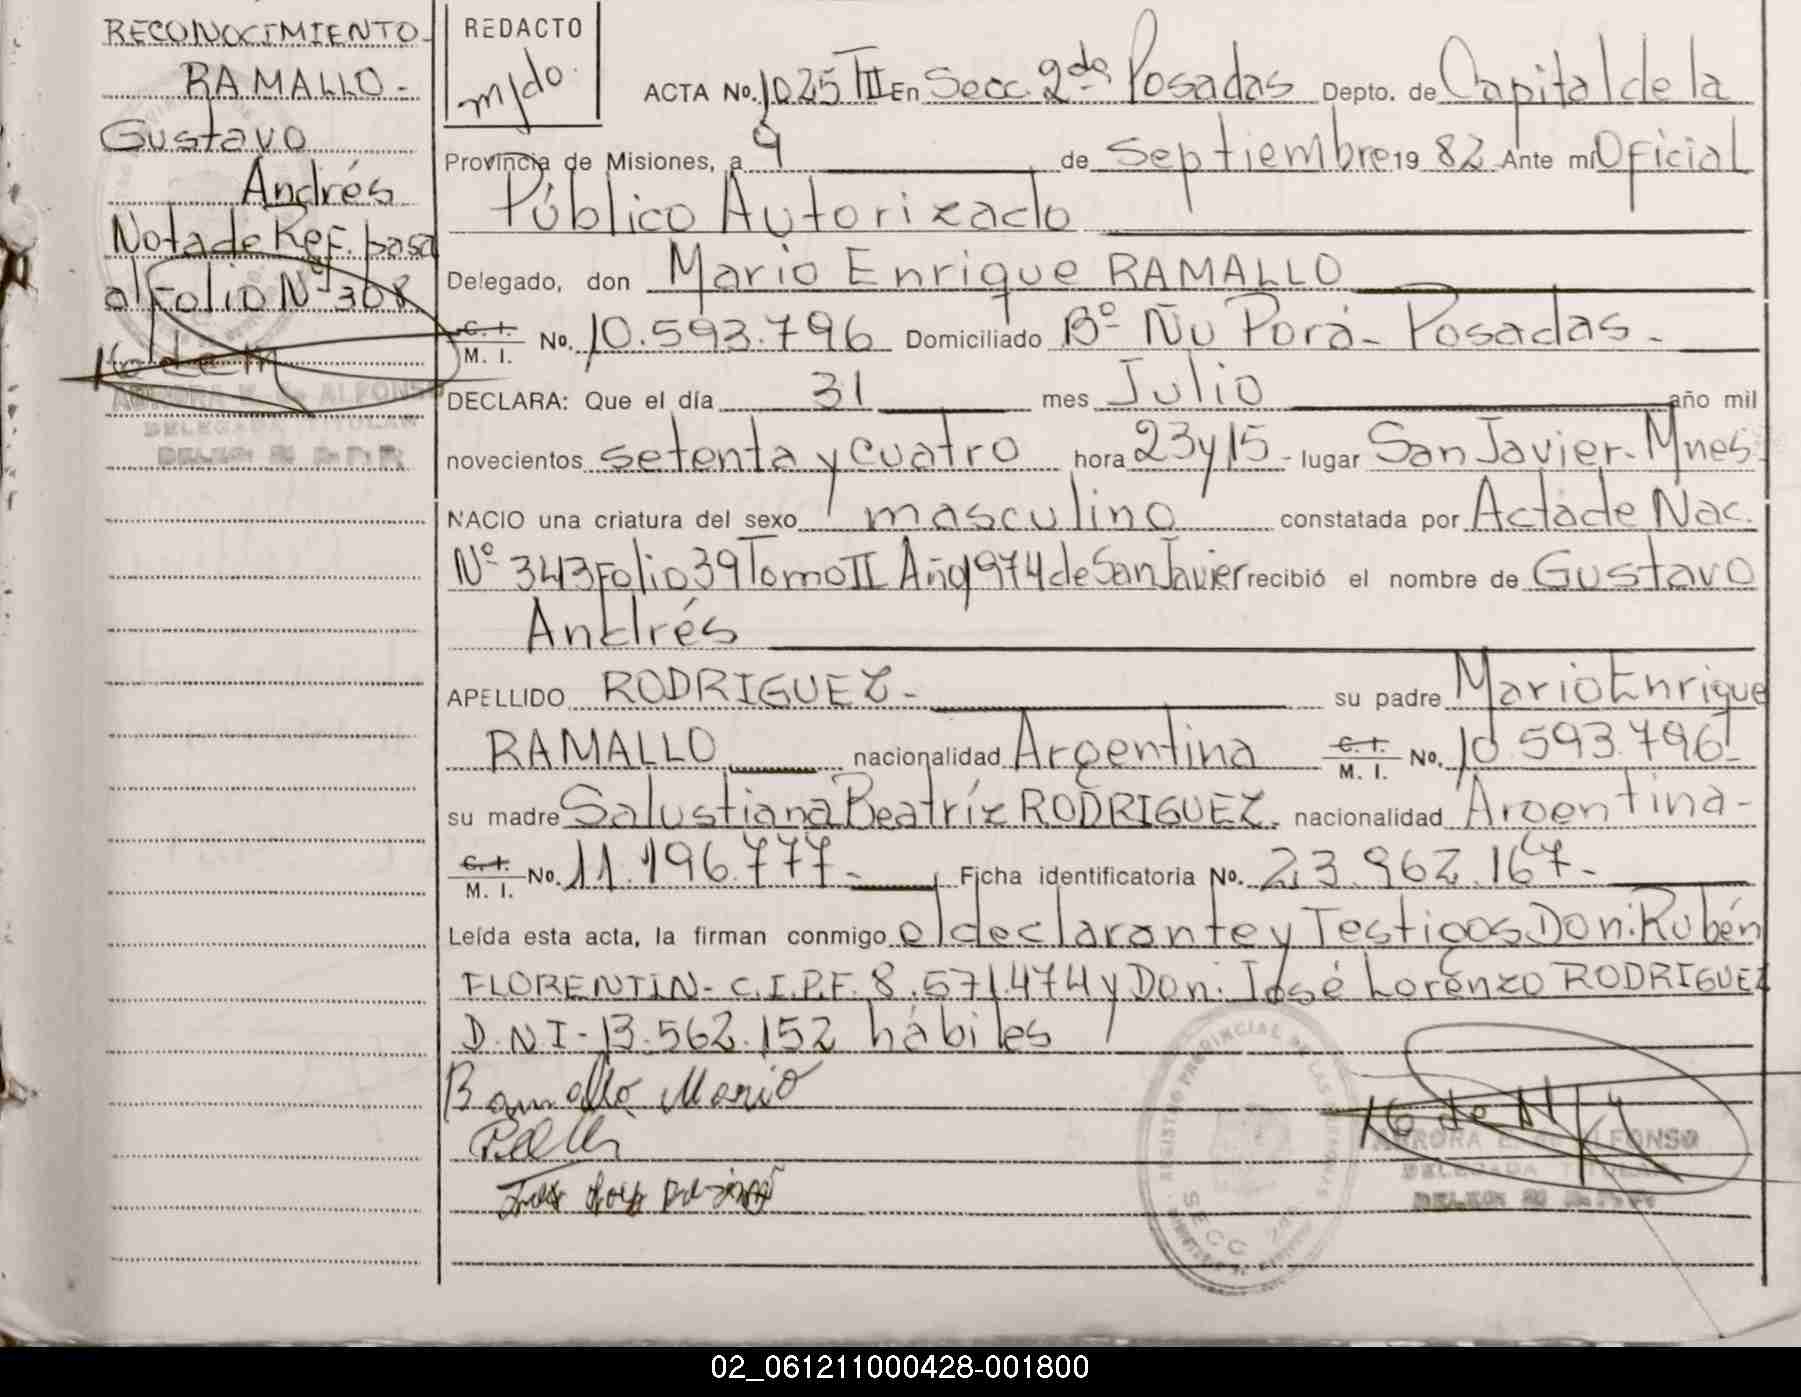 RECONOCIMIENTO-
RAMALLO-
Gustavo
Andrés
Nota de Ref. pasa
al Folio Nº 368
AURORA E. de ALFONSO
DELEGADA TITULAR
REDACTO
m/do.
ACTA No. 1025 TII En Secc. 2da Posadas Depto. de Capital de la
Provincia de Misiones, a 9 de Septiembre 19 82 Ante mí Oficial
Público Autorizado
Delegado, don Mario Enrique RAMALLO
C. I. M. I. No. 10.593.796 Domiciliado Bº Ñu Porá- Posadas-
DECLARA: Que el día 31 mes Julio año mil
novecientos setenta y cuatro hora 23 y 15- lugar San Javier- Mnes
NACIO una criatura del sexo masculino constatada por Acta de Nac.
Nº 343 Folio 39 Tomo II Año 1974 de San Javier recibió el nombre de Gustavo
Andrés
APELLIDO RODRIGUEZ- su padre Mario Enrique
RAMALLO nacionalidad Argentina C. I. M. I. No. 10.593.796-
su madre Salustiana Beatríz RODRIGUEZ. nacionalidad Argentina-
C. I. M. I. No. 11.196.777- Ficha identificatoria No. 23.962.167-
Leída esta acta, la firman conmigo el declarante y Testigos Don: Rubén
FLORENTIN- C.I.P.F. 8.571.474 y Don: José Lorenzo RODRIGUEZ
D.N.I- 13.562.152 hábiles
Ramallo Mario
REGISTRO PROVINCIAL DE LAS PERSONAS
SECC 2da
AURORA E. de ALFONSO
DELEGADA TITULAR
02_061211000428-001800